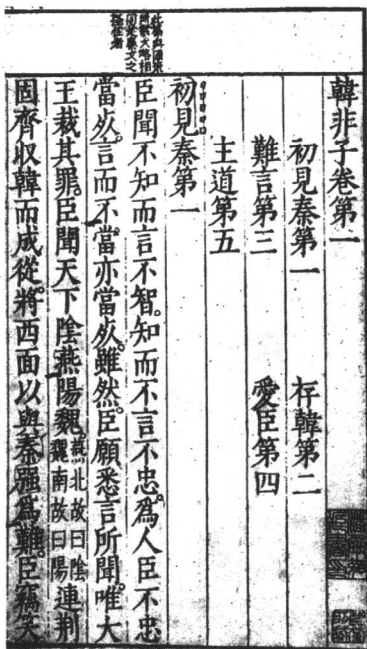 韓非子卷第一
初見秦第一 存韓第二
難言第三 愛臣第四
主道第五
初見秦第一
臣聞不知而言不智。知而不言不忠。爲人臣不忠
當死。言而不當亦當死。雖然。臣願悉言所聞。唯大
王裁其罪。臣聞天下陰燕陽魏燕北故曰陰魏南故曰陽連荆
固齊収韓而成從。將西面以與秦强爲難。臣竊笑